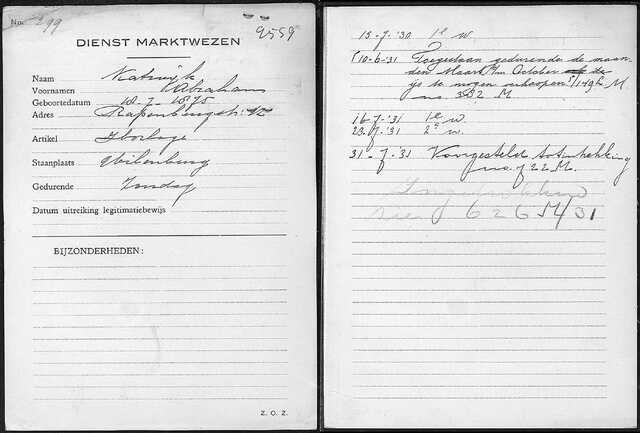 No. 299
9559
DIENST MARKTWEZEN
Naam Katwijk
Voornamen Abraham
Geboortedatum 18-7-1875
Adres Rapenburgstr. 12
Artikel Horloge
Staanplaats Uilenburg
Gedurende Zondag
Datum uitreiking legitimatiebewijs
BIJZONDERHEDEN:
Z. O. Z.
15-7-'30 1e w.
10-6-31 Toegestaan gedurende de maan-
den Maart t/m October de
ijs te mogen verkoopen
no. 392 M
16-7-'31 1e w.
23-7-'31 2e w.
31-7-31 Voorgesteld tot intrekking
no. 722 M.
Ingetrokken
626 M/31